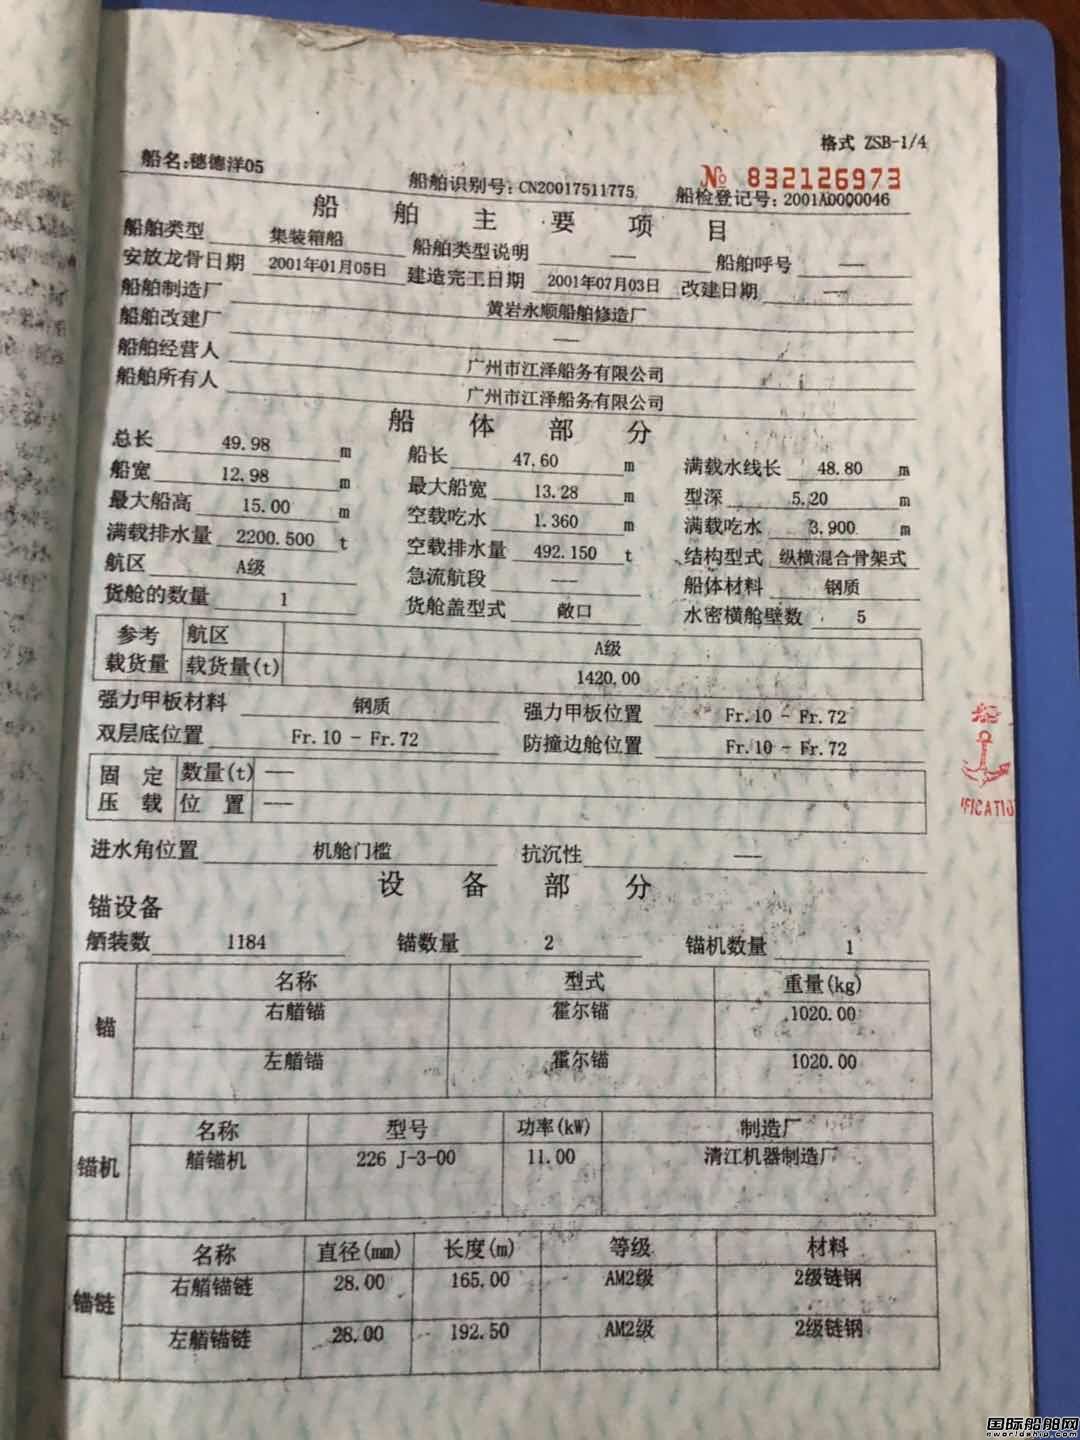 格式 ZSB-1/4
船名:穗德洋05 船舶识别号:CN20017511775 № 832126973
船检登记号:2001A0000046
船舶主要项目
船舶类型 集装箱船 船舶类型说明 —— 船舶呼号 ——
安放龙骨日期 2001年01月05日 建造完工日期 2001年07月03日 改建日期 ——
船舶制造厂 黄岩永顺船舶修造厂
船舶改建厂 ——
船舶经营人 广州市江泽船务有限公司
船舶所有人 广州市江泽船务有限公司
船体部分
总长 49.98 m 船长 47.60 m 满载水线长 48.80 m
船宽 12.98 m 最大船宽 13.28 m 型深 5.20 m
最大船高 15.00 m 空载吃水 1.360 m 满载吃水 3.900 m
满载排水量 2200.500 t 空载排水量 492.150 t 结构型式 纵横混合骨架式
航区 A级 急流航段 --- 船体材料 钢质
货舱的数量 1 货舱盖型式 敞口 水密横舱壁数 5
参考载货量 航区 A级
载货量(t) 1420.00
强力甲板材料 钢质 强力甲板位置 Fr.10 - Fr.72
双层底位置 Fr.10 - Fr.72 防撞边舱位置 Fr.10 - Fr.72
固定压载 数量(t) ---
位置 ---
进水角位置 机舱门槛 抗沉性 ---
设备部分
锚设备
舾装数 1184 锚数量 2 锚机数量 1
锚 名称 型式 重量(kg)
右艏锚 霍尔锚 1020.00
左艏锚 霍尔锚 1020.00
锚机 名称 型号 功率(kW) 制造厂
艏锚机 226 J-3-00 11.00 清江机器制造厂
锚链 名称 直径(mm) 长度(m) 等级 材料
右艏锚链 28.00 165.00 AM2级 2级链钢
左艏锚链 28.00 192.50 AM2级 2级链钢
船
IFICATIO
国际船舶网
eworldship.com